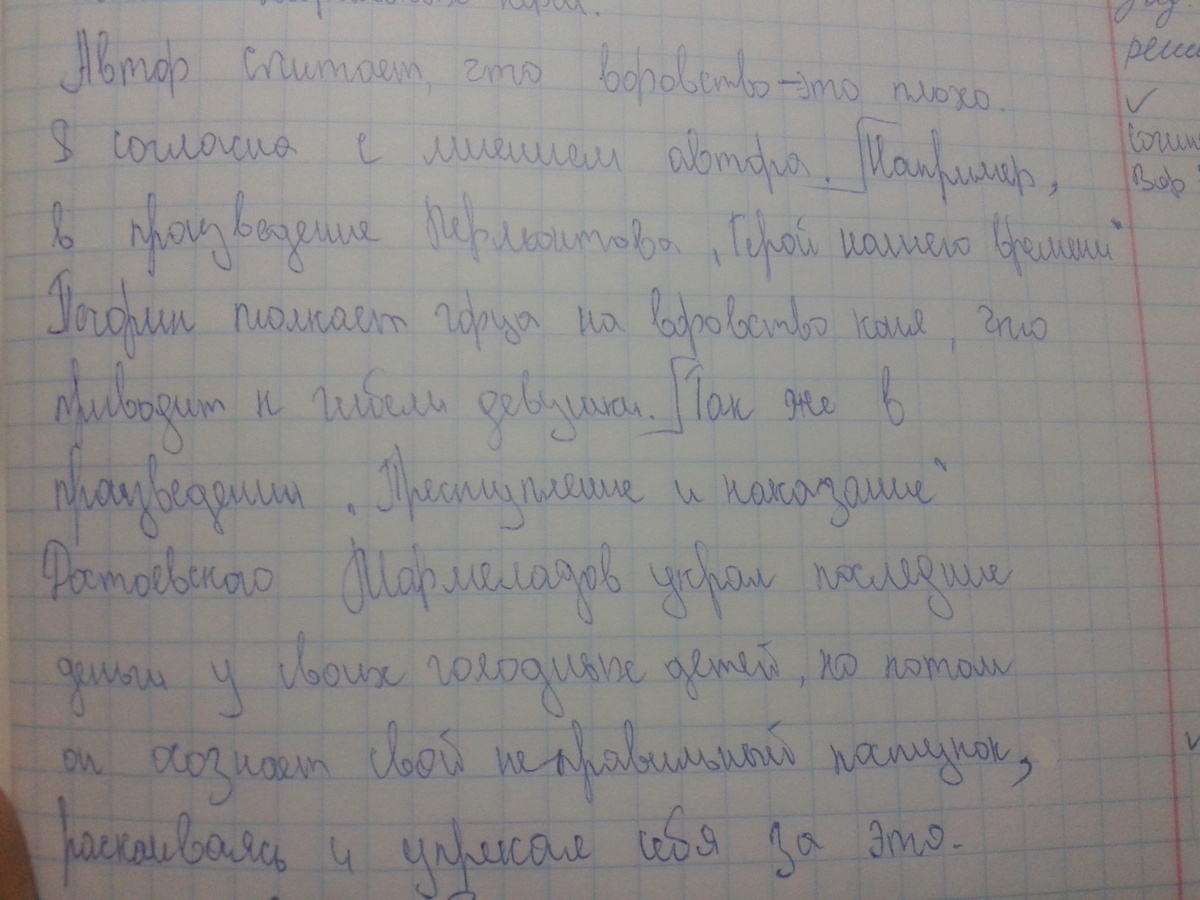 Автор считает, что воровство - это плохо.
Я согласна с мнением автора. Например,
в произведение Лермонтова „Герой нашего времени“
Печорин толкает горца на воровство коня, что
приводит к гибели девушки. Так же в
произведении „Преступление и наказание“
Достоевского Мармеладов украл последние
деньги у своих голодных детей, но потом
он осознает свой неправильный поступок,
раскаиваясь и упрекая себя за это.
реш
✓
сочин
Вор
✓